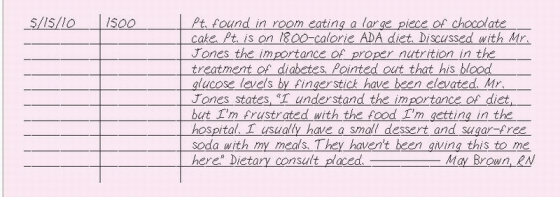 5/15/10 1500 Pt. found in room eating a large piece of chocolate
cake. Pt. is on 1800-calorie ADA diet. Discussed with Mr.
Jones the importance of proper nutrition in the
treatment of diabetes. Pointed out that his blood
glucose levels by fingerstick have been elevated. Mr.
Jones states, "I understand the importance of diet,
but I'm frustrated with the food I'm getting in the
hospital. I usually have a small dessert and sugar-free
soda with my meals. They haven't been giving this to me
here." Dietary consult placed. ——— May Brown, RN